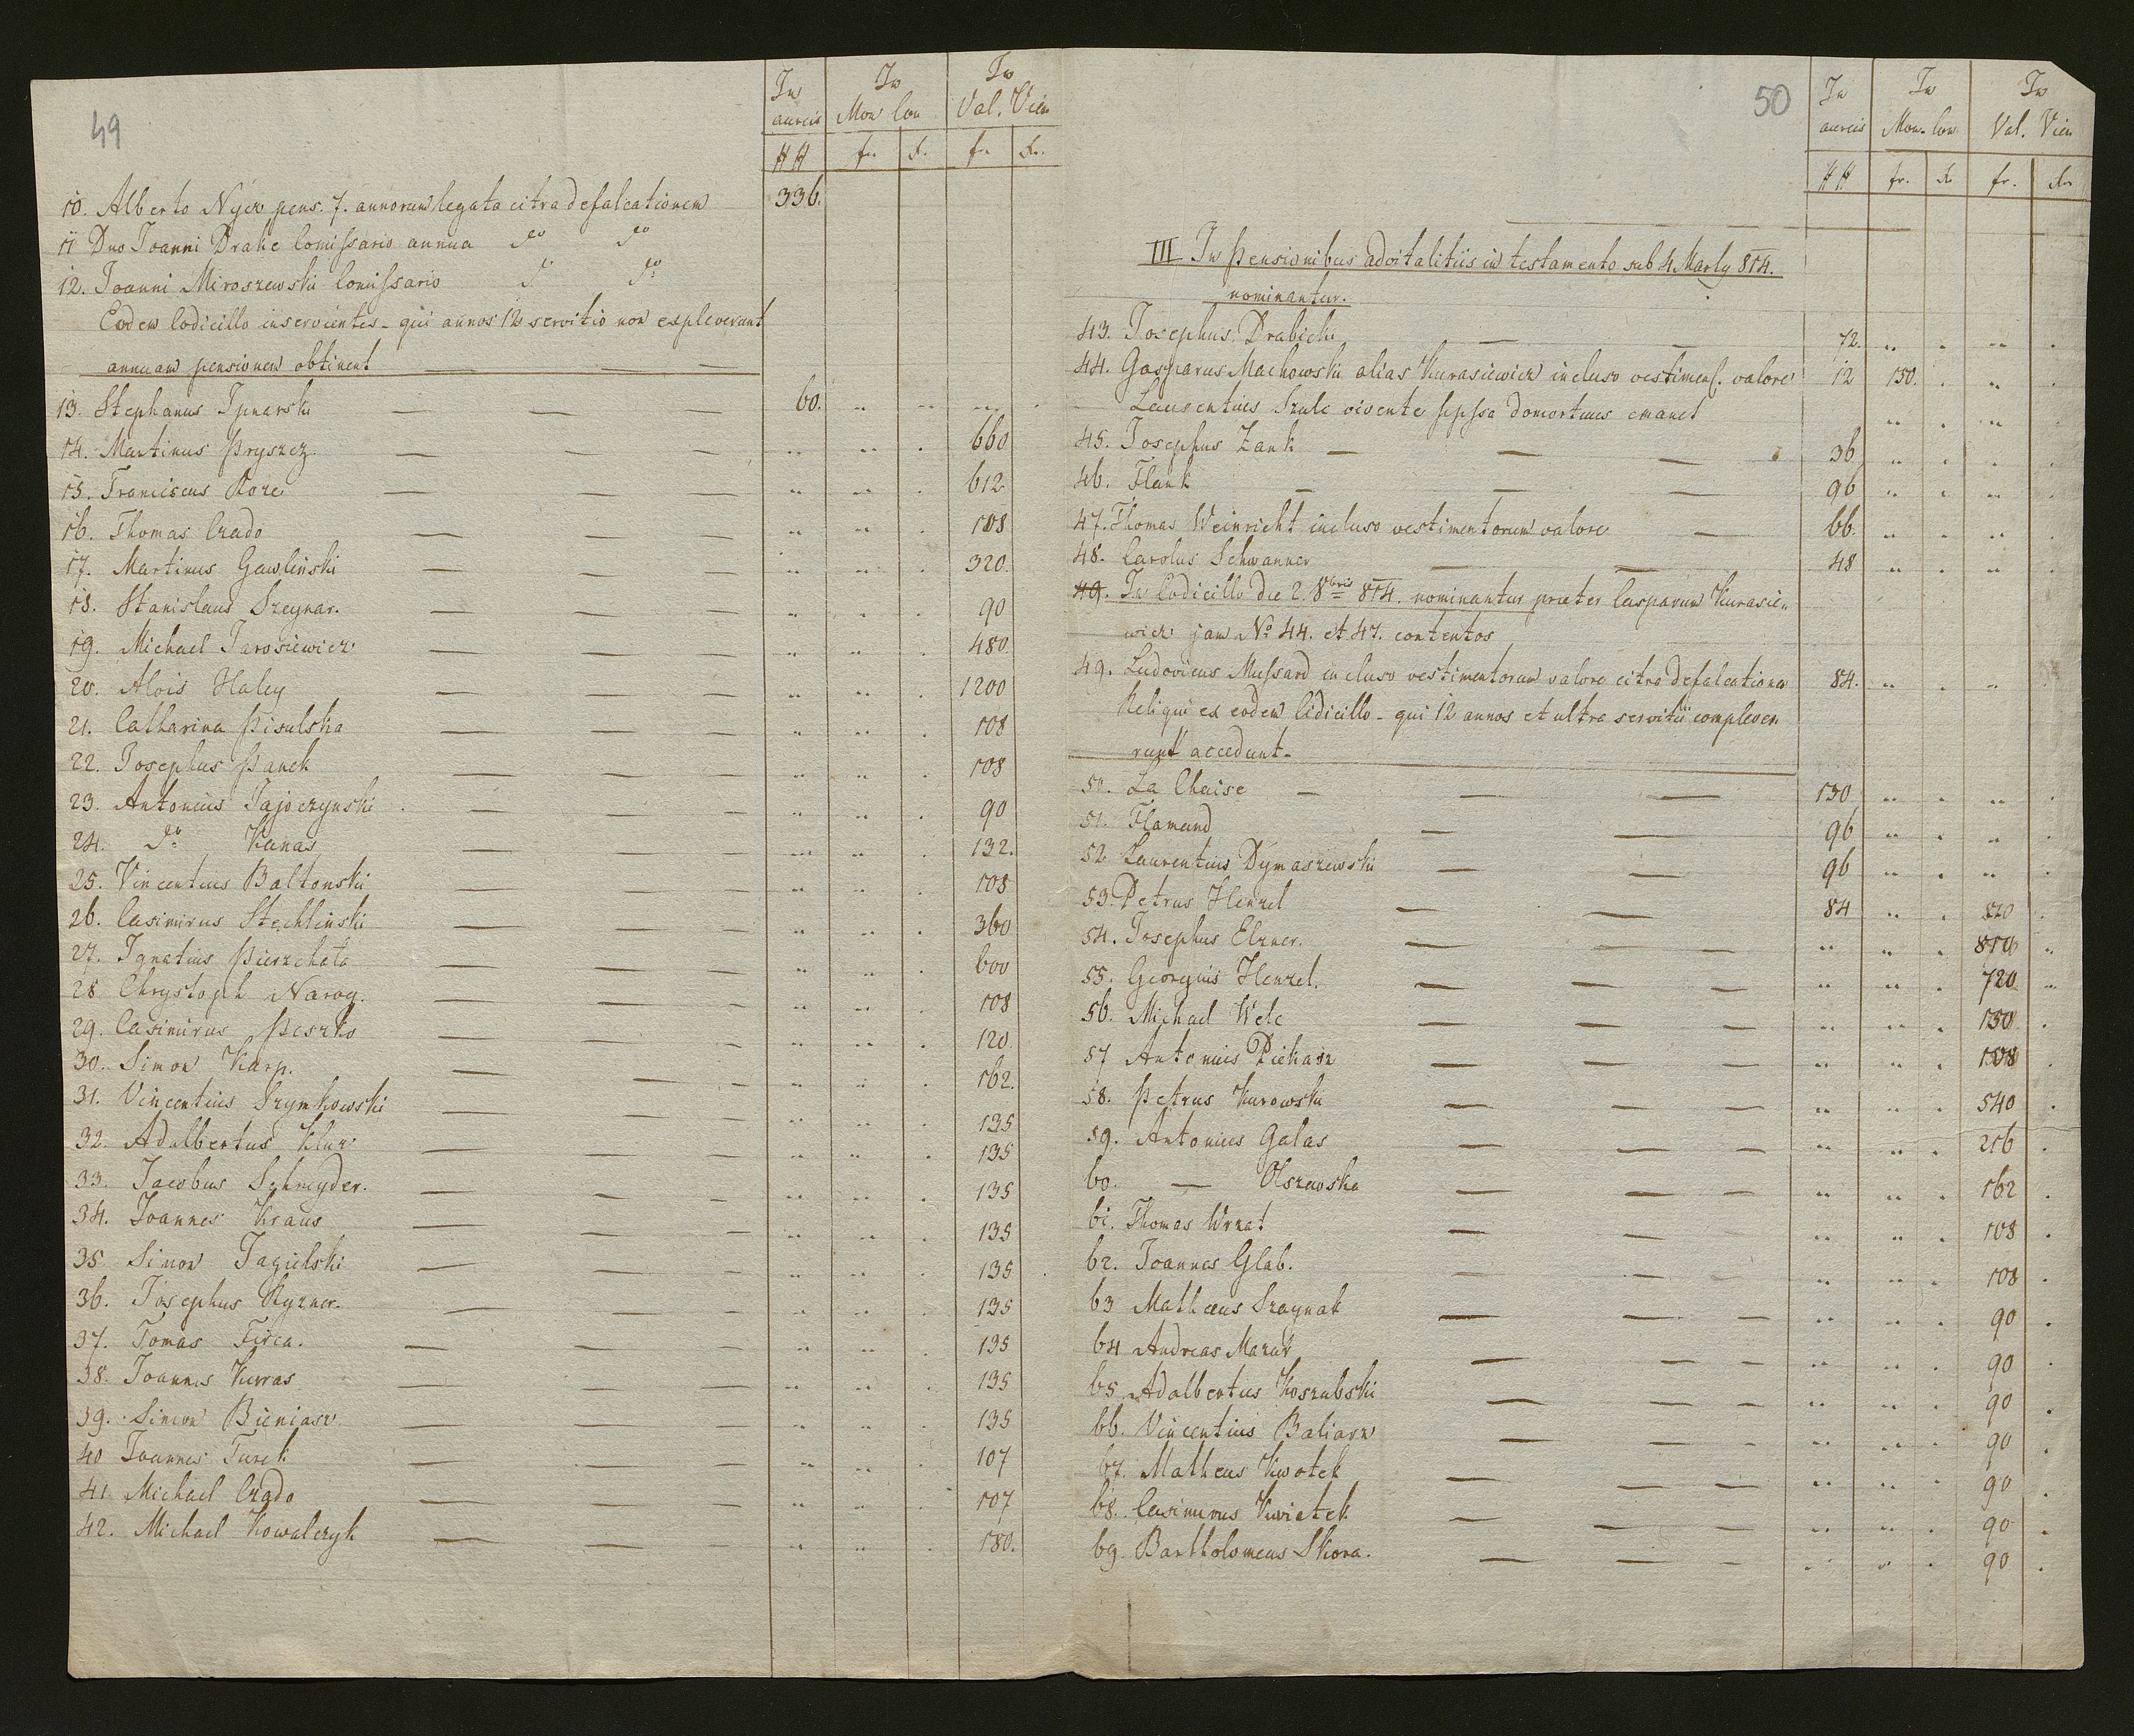 49
In aureis In Mon Con In Val. Vien
## fr. Xr. fr. Xr.
10. Alberto Nycz pens. 7. annorum legata citra defalcationem 336.
11 Dno Joanni Drake Comissario annua do do
12. Joanni Miroszewski Comissario do do
Eodem Codicillo inservientes - qui annos 12 servitio non expleverunt
annuam pensionem obtinent
13. Stephanus Ignarski 60.
14. Martinus Pryszcz. 660
15. Franciscus Koza 612
16. Thomas Czado 108
17. Martinus Gawliński 320.
18. Stanislaus Szeynar. 90
19. Michael Jarosiewicz 480.
20. Alois Haley 1200
21. Catharina Pisulska 108
22. Josephus Panek 108
23. Antonius Jajoczynski 90
24. do Kanas 132.
25. Vincentius Baltonski 108
26. Casimirus Stechlinski 360
27. Ignatius Pierzchała 600
28 Chrystoph Narog. 108
29. Casimirus Peszko 120
30. Simon Karp. 162.
31. Vincentius Szymkowski 135
32. Adalbertus Kluz 135
33. Jacobus Schneyder. 135
34. Joannes Kraus 135
35 Simon Jagielski 135
36. Josephus Kyzner. 135
37. Tomas Firca. 135
38. Joannes Kurras 135
39. Simon Bieniasz 135
40 Joannes Turek 107
41. Michael Czado 107
42. Michael Kowalczyk 180.
50
In aureis In Mon. Con In Val. Vien
## fr. Xr fr. Xr
III In Pensionibus advitalitiis in testamento sub 4 Marty 814.
nominantur.
43. Josephus Drabicki 72.
44. Gasparus Machowski alias Kurasiewicz incluso vestimens. valore 12 150.
Laurentius Szulc vivente
45. Josephus Zank 36
46. Flank 96
47. Thomas Weinricht incluso vestimentorum valore 66.
48. Carolus Schwanner 48
49. In Codicillo die 2. 8bris 814. nominantur praeter Casparum Kurasie-
wicz jam No 44. et 47. contentos
49. Ludovicus Mussard incluso vestimentorum valore citra defalcationem 84.
Reliqui ex eodem Cidicillo - qui 12 annos et ultra servitii compleve-
runt accedunt.
50. La Chaise 130
51. Flamand 96
52 Laurentius Dymaszewski 96
53. Petrus Henzel 84 820
54. Josephus Elzner. 810
55. Georgius Henzel. 720
56. Michael Welc 150
57 Antonius Piekarz 108
58. Petrus Kurowski 540
59. Antonius Galas 216
60. — Olszewska 162
61. Thomas Wrzat 108
62. Joannes Glab. 108
63 Mathaeus Szaynak 90
64 Andreas Mazur 90
65. Adalbertus Koszubski 90
66. Vincentius Baliasz 90
67. Matheus Kwotek 90
68. Casimirus Kwiatek 90
69. Bartholomeus Skora. 90